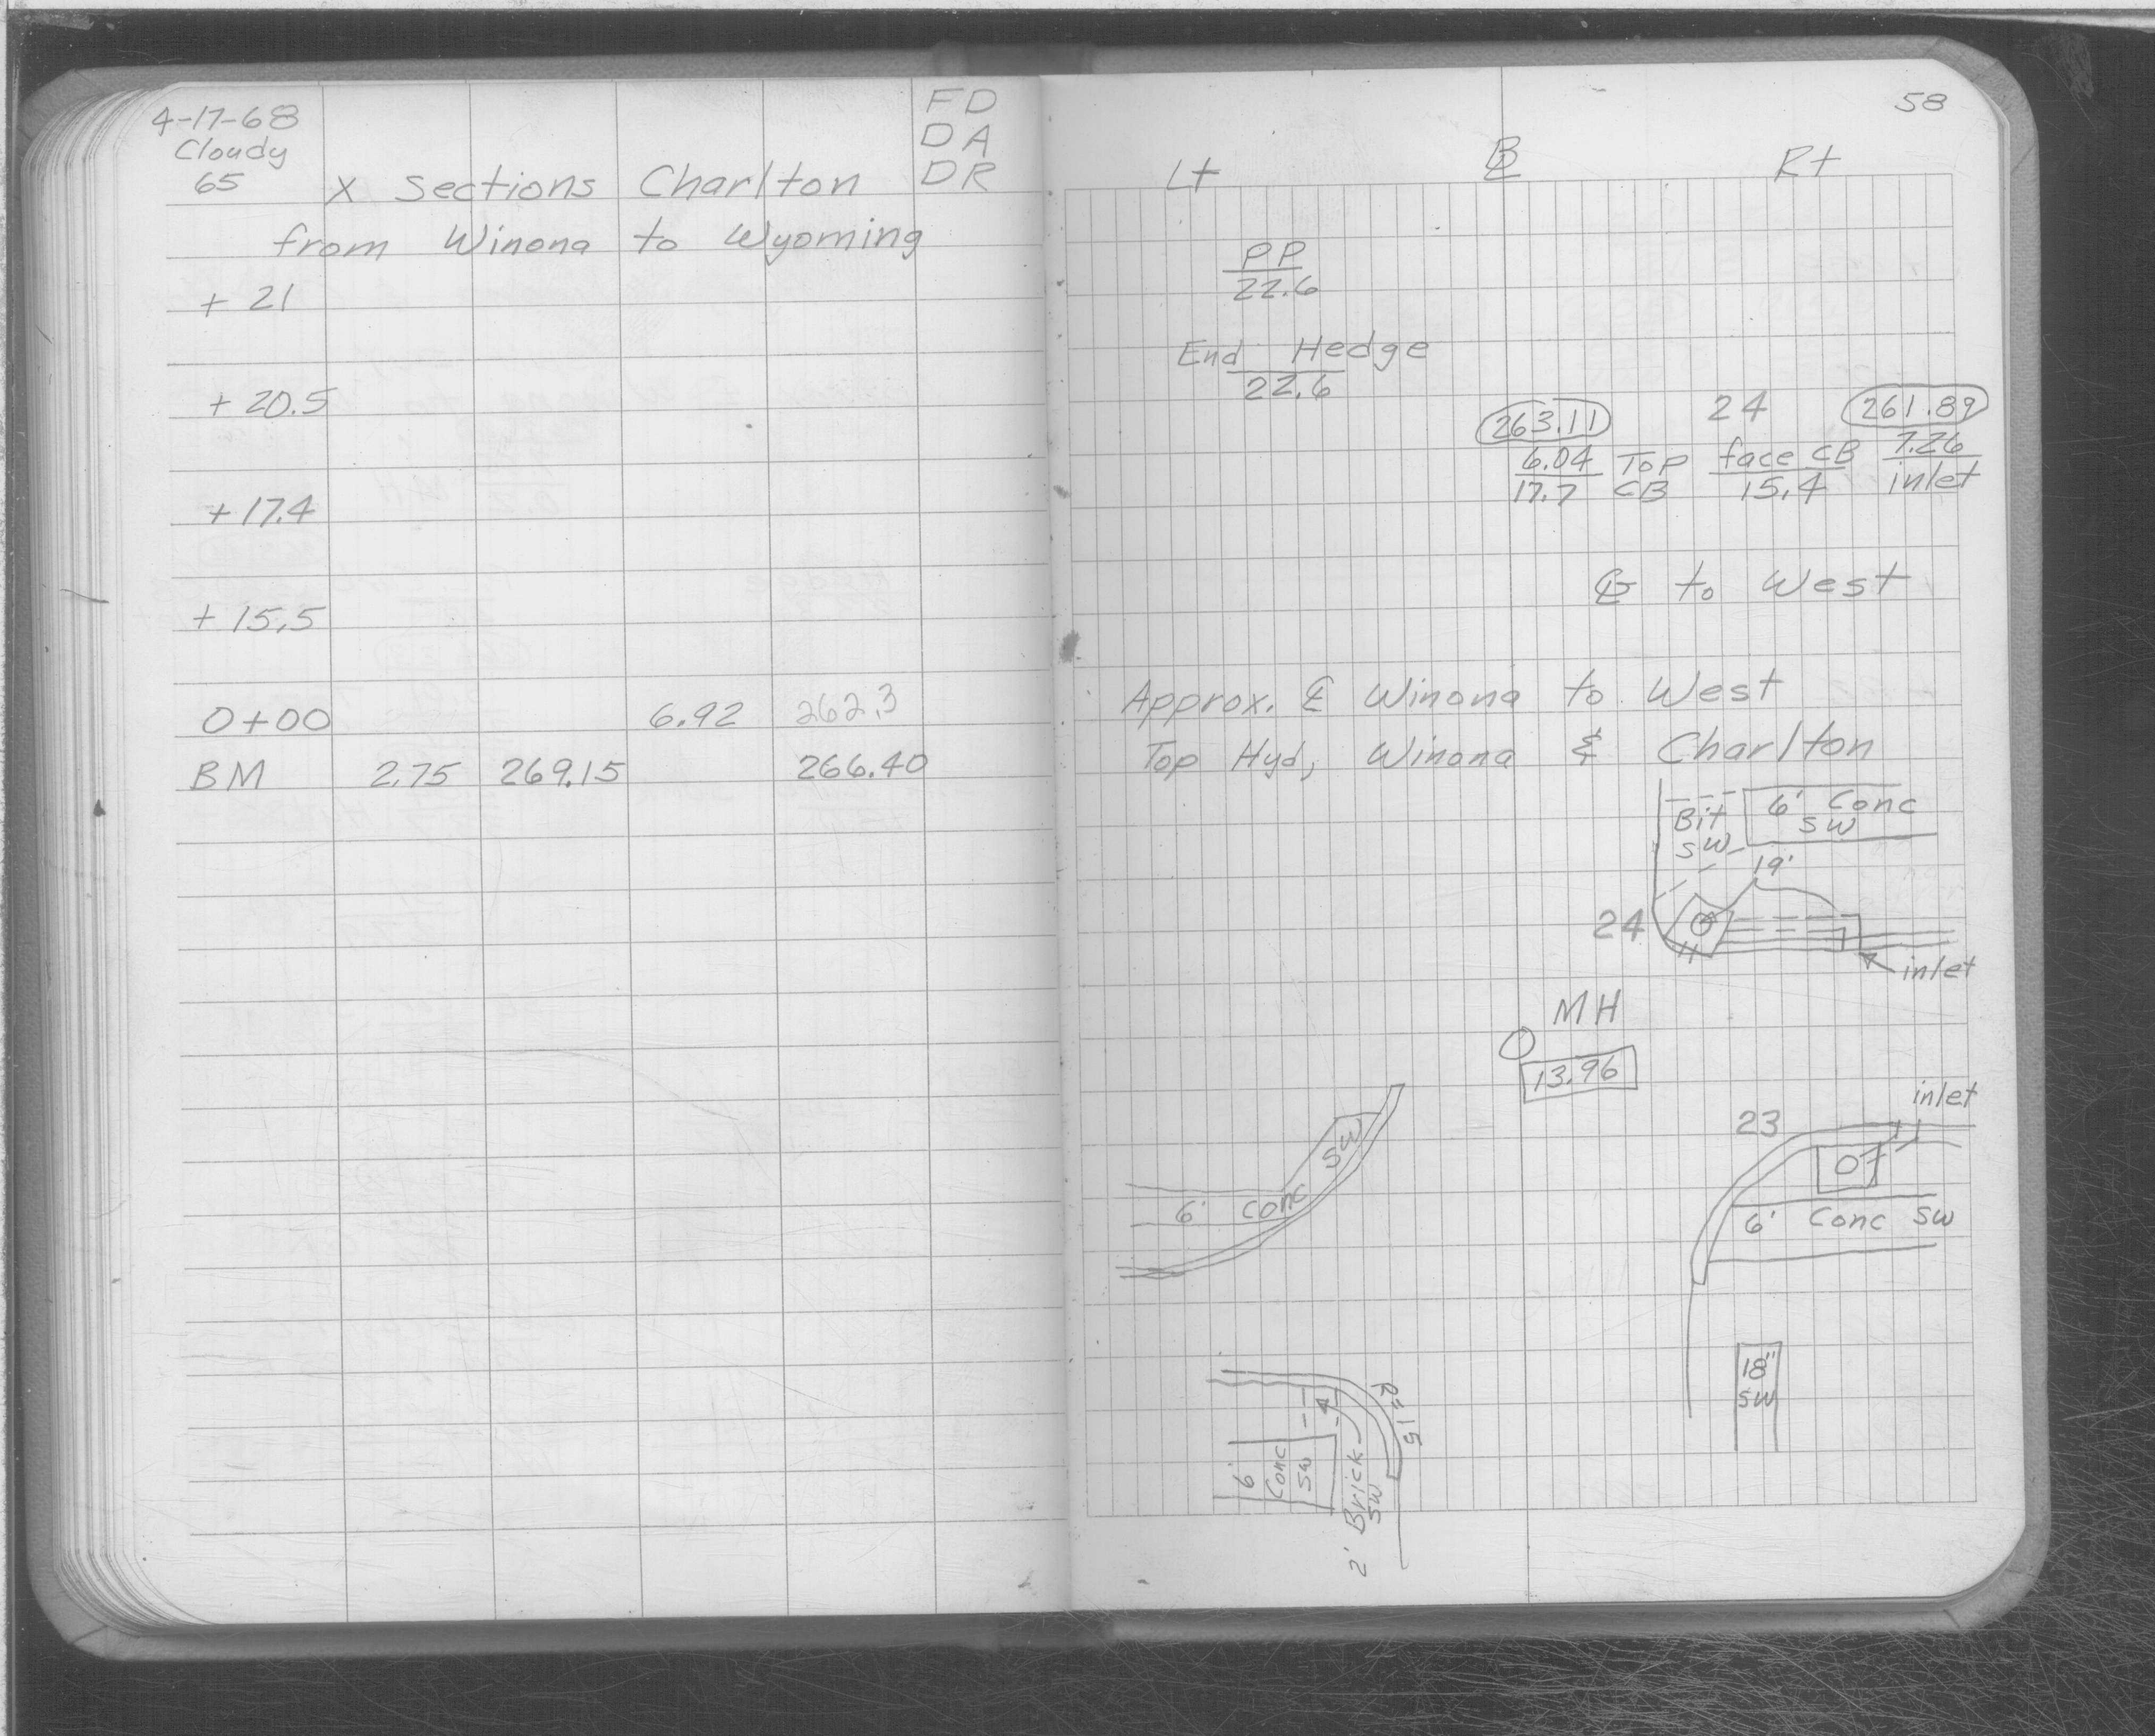 4-17-68
Cloudy
65
FD
DA
DR
x sections Charlton
from Winona to Wyoming
+ 21
+ 20.5
+ 17.4
+ 15.5
0+00 6.92 262.3
BM 2.75 269.15 266.40
58
Lt BL Rt
PP
22.6
End Hedge
22.6
263.11 24 261.89
6.04 Top face CB 7.26
17.7 CB 15.4 inlet
℄ to West
Approx. ℄ Winona to West
Top Hyd, Winona & Charlton
Bit 6' Conc
SW SW
19'
24
inlet
MH
13.96
inlet
23
SW
6' Conc
6' Conc SW
18"
SW
6'
Conc
SW
4
2' Brick
SW